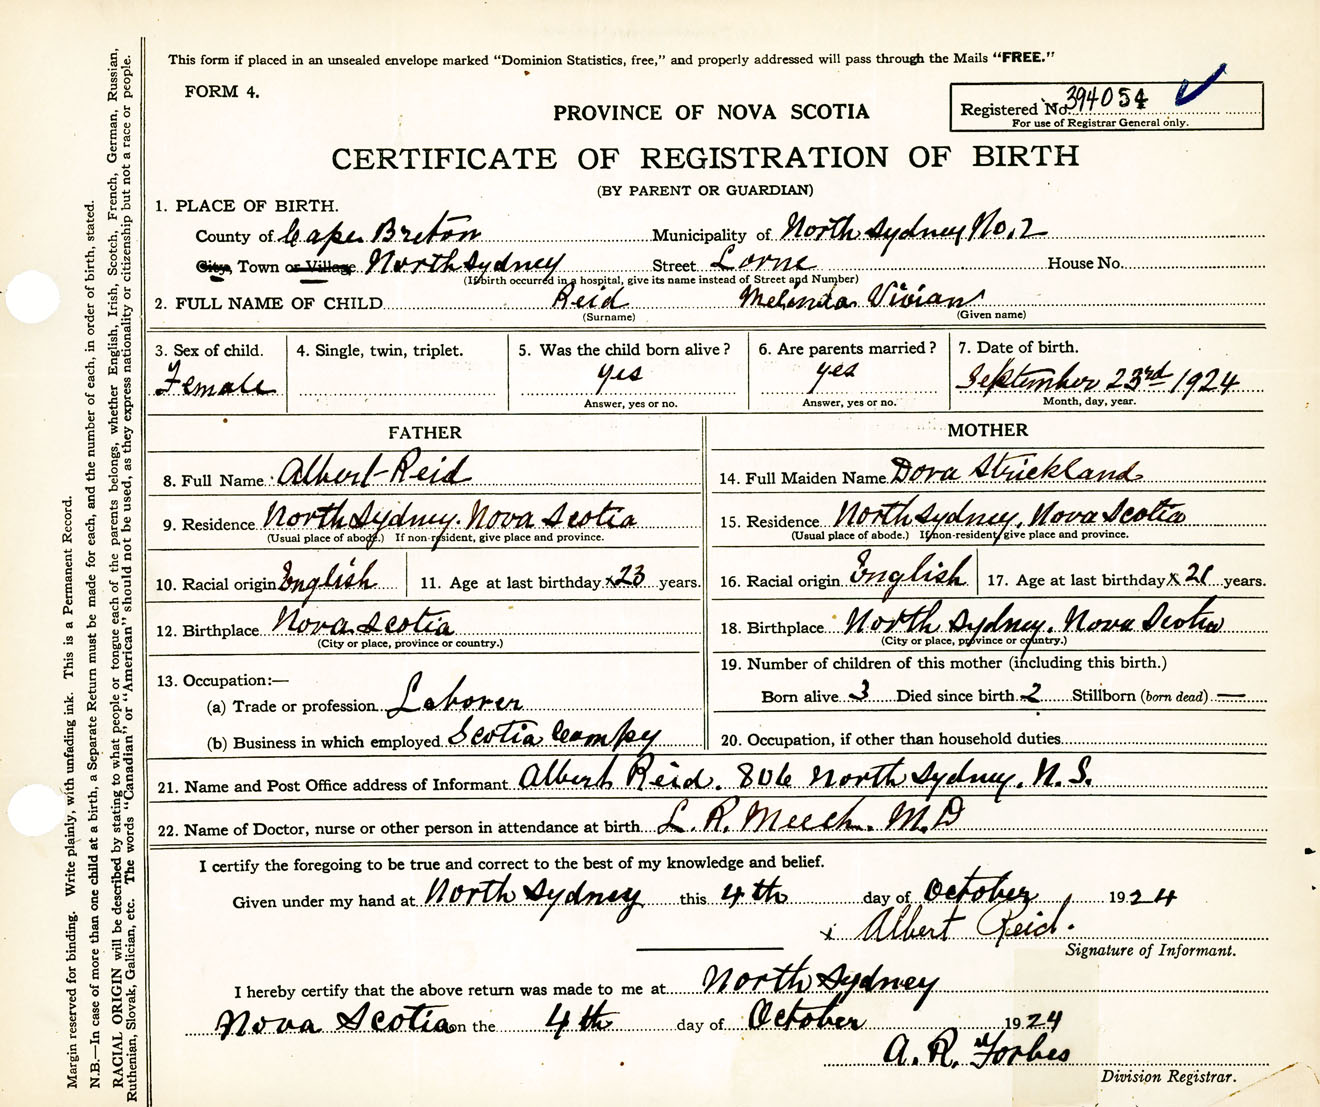 This form if placed in an unsealed envelope marked “Dominion Statistics, free,” and properly addressed will pass through the Mails “FREE.”
FORM 4.
Registered No. 394054
For use of Registrar General only.
PROVINCE OF NOVA SCOTIA
CERTIFICATE OF REGISTRATION OF BIRTH
(BY PARENT OR GUARDIAN)
1. PLACE OF BIRTH.
County of Cape Breton Municipality of North Sydney No. 2
City, Town or Village North Sydney Street Lorne House No.
(If birth occurred in a hospital, give its name instead of Street and Number)
2. FULL NAME OF CHILD Reid Melinda Vivian
(Surname) (Given name)
3. Sex of child. 4. Single, twin, triplet. 5. Was the child born alive? 6. Are parents married? 7. Date of birth.
Female yes yes September 23rd 1924
Answer, yes or no. Answer, yes or no. Month, day, year.
FATHER MOTHER
8. Full Name Albert Reid 14. Full Maiden Name Dora Strickland
9. Residence North Sydney. Nova Scotia 15. Residence North Sydney, Nova Scotia
(Usual place of abode.) If non-resident, give place and province. (Usual place of abode.) If non-resident, give place and province.
10. Racial origin English 11. Age at last birthday x23 years. 16. Racial origin English 17. Age at last birthday x 21 years.
12. Birthplace Nova Scotia 18. Birthplace North Sydney. Nova Scotia
(City or place, province or country.) (City or place, province or country.)
13. Occupation:— 19. Number of children of this mother (including this birth.)
(a) Trade or profession Laborer Born alive 3 Died since birth 2 Stillborn (born dead) —
(b) Business in which employed Scotia Compy 20. Occupation, if other than household duties
21. Name and Post Office address of Informant Albert Reid. 806 North Sydney. N.S.
22. Name of Doctor, nurse or other person in attendance at birth L. R. Meech. M.D
I certify the foregoing to be true and correct to the best of my knowledge and belief.
Given under my hand at North Sydney this 4th day of October 1924
x Albert Reid.
Signature of Informant.
I hereby certify that the above return was made to me at North Sydney
Nova Scotia on the 4th day of October 1924
A. R. Forbes
Division Registrar.
Margin reserved for binding. Write plainly, with unfading ink. This is a Permanent Record.
N.B.—In case of more than one child at a birth, a Separate Return must be made for each, and the number of each, in order of birth, stated.
RACIAL ORIGIN will be described by stating to what people or tongue each of the parents belongs, whether English, Irish, Scotch, French, German, Russian,
Ruthenian, Slovak, Galician, etc. The words “Canadian” or “American” should not be used, as they express nationality or citizenship but not a race or people.